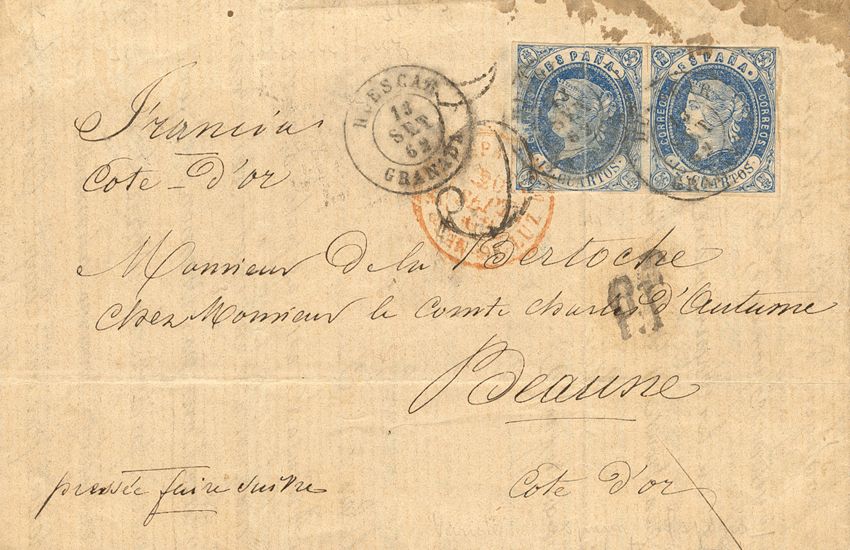 ESPAÑA ESPAÑA
CORREOS CORREOS
12 CUARTOS
CUARTOS
HUESCAR
18
SET
62
GRANADA
Francia
Cote-d'or
LUZ
Monsieur de la Bertoche
chez Monsieur le Comte Charles d'Autume
P.P
Beaune
Cote d'or
pressée faire suivre